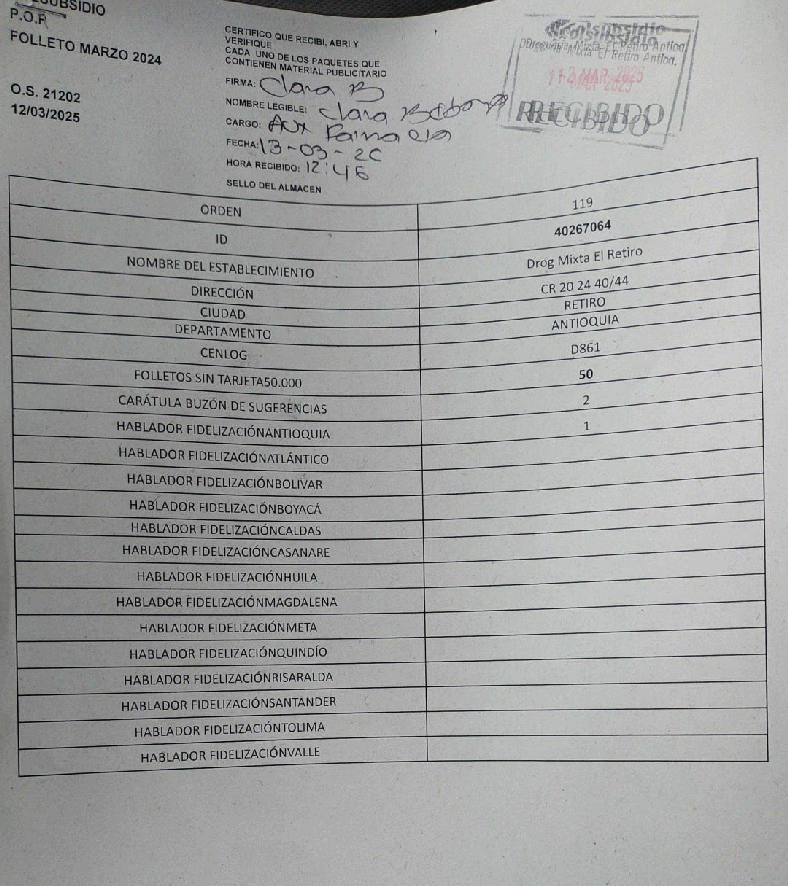 SUBSIDIO
P.O.P
FOLLETO MARZO 2024
O.S. 21202
12/03/2025
CERTIFICO QUE RECIBI, ABRI Y
VERIFIQUE
CADA UNO DE LOS PAQUETES QUE
CONTIENEN MATERIAL PUBLICITARIO
FIRMA: Clara B
NOMBRE LEGIBLE: Clara
CARGO: Aux Farmacia
FECHA: 13-03-20
HORA RECIBIDO: 12:46
SELLO DEL ALMACEN
Consubsidio
Droguería Mixta El Retiro Antioq.
MAR 2025
RECIBIDO
ORDEN 119
ID 40267064
NOMBRE DEL ESTABLECIMIENTO Drog Mixta El Retiro
DIRECCIÓN CR 20 24 40/44
CIUDAD RETIRO
DEPARTAMENTO ANTIOQUIA
CENLOG D861
FOLLETOS SIN TARJETA50.000 50
CARÁTULA BUZÓN DE SUGERENCIAS 2
HABLADOR FIDELIZACIÓNANTIOQUIA 1
HABLADOR FIDELIZACIÓNATLÁNTICO
HABLADOR FIDELIZACIÓNBOLIVAR
HABLADOR FIDELIZACIÓNBOYACÁ
HABLADOR FIDELIZACIÓNCALDAS
HABLADOR FIDELIZACIÓNCASANARE
HABLADOR FIDELIZACIÓNHUILA
HABLADOR FIDELIZACIÓNMAGDALENA
HABLADOR FIDELIZACIÓNMETA
HABLADOR FIDELIZACIÓNQUINDÍO
HABLADOR FIDELIZACIÓNRISARALDA
HABLADOR FIDELIZACIÓNSANTANDER
HABLADOR FIDELIZACIÓNTOLIMA
HABLADOR FIDELIZACIÓNVALLE